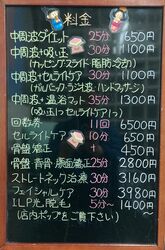 料金
中周波ダイエット 25分 650円
中周波+吸い玉 30分 1100円
(カッピングスライド 脂肪溶力)
中周波+セルライトケア 30分 1100円
(ガルバニック・ラジオ波 ハンドマッサージ)
中周波・温浴マット 35分 1300円
(吸い玉つ セルライトケア1つ)
回数券 11回 6500円
セルライトケア 10分 650円
骨盤矯正 + 450円
骨盤・背骨・顔面矯正 25分 2800円
ストレートネック治療 30分 3160円
フェイシャルケア 30分 3980円
I.L.P光脱毛 5分〜 1400〜
(店内ポップをご覧下さい)